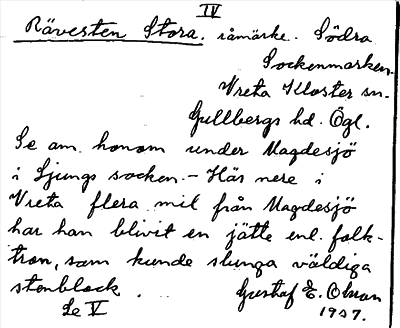 IV
Rävesten Stora. råmärke. Södra
Sockenmarken.
Vreta Kloster sn.
Gullbergs hd. Ögl.
Se am. honom under Magdesjö
i Ljungs socken. - Här nere i
Vreta flera mil från Magdesjö
har han blivit en jätte enl. folk-
tron, som kunde slunga väldiga
stenblock.
Gustaf E. Olsson
Se V
1937.